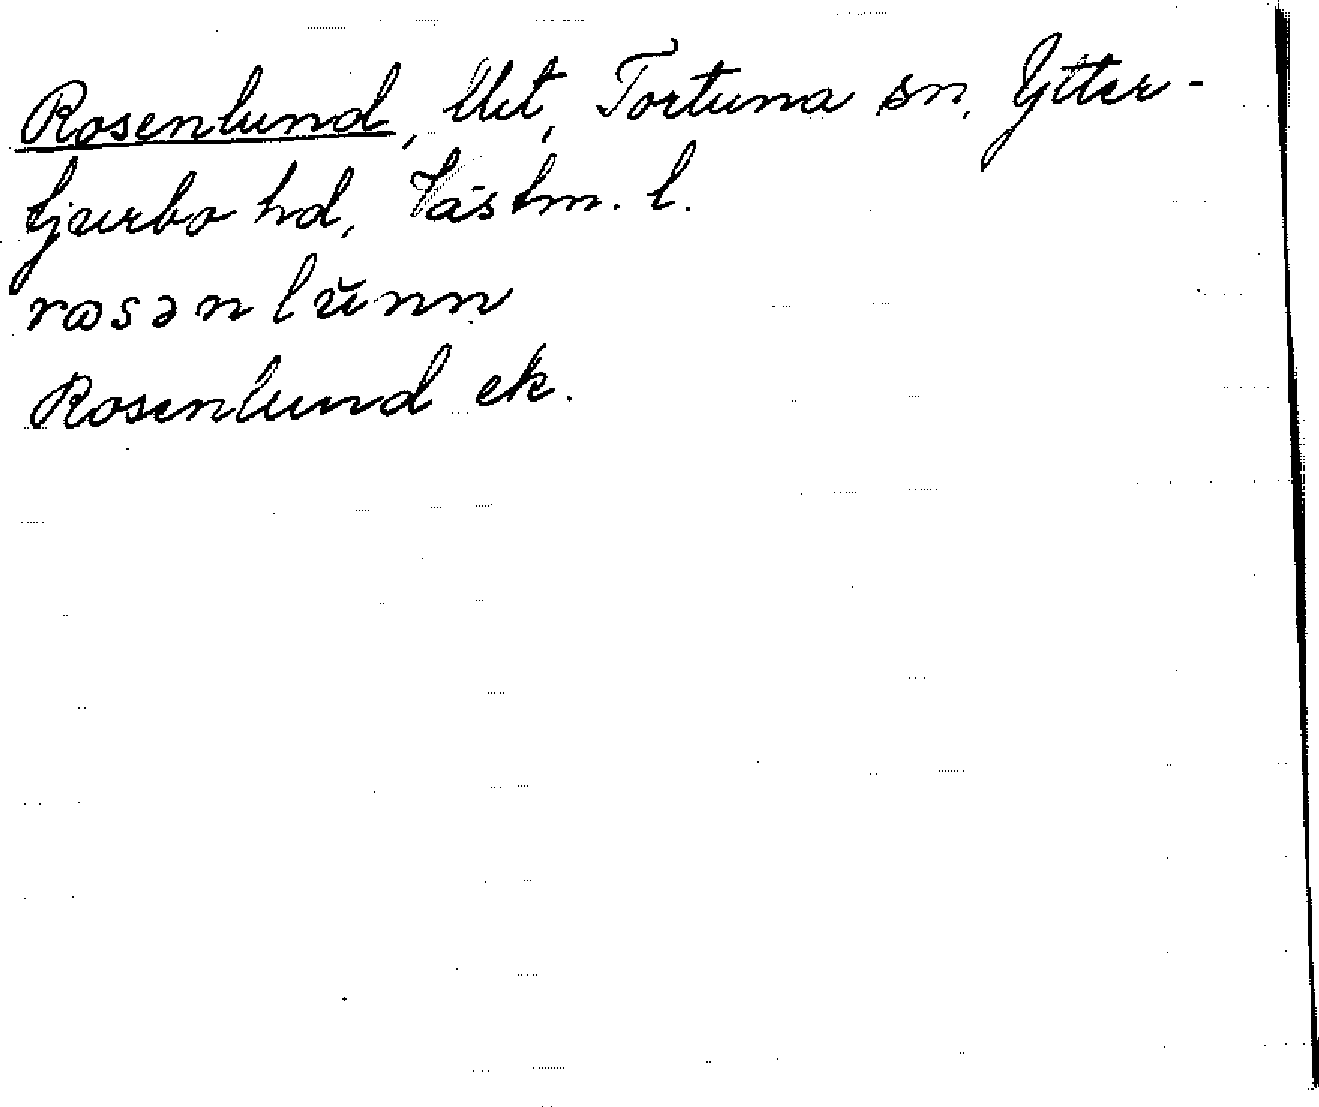 Rosenlund, Ut, Tortuna sn, Ytter-
tjurbo hd, Västm. l.
rosən lŭnn
Rosenlund ek.